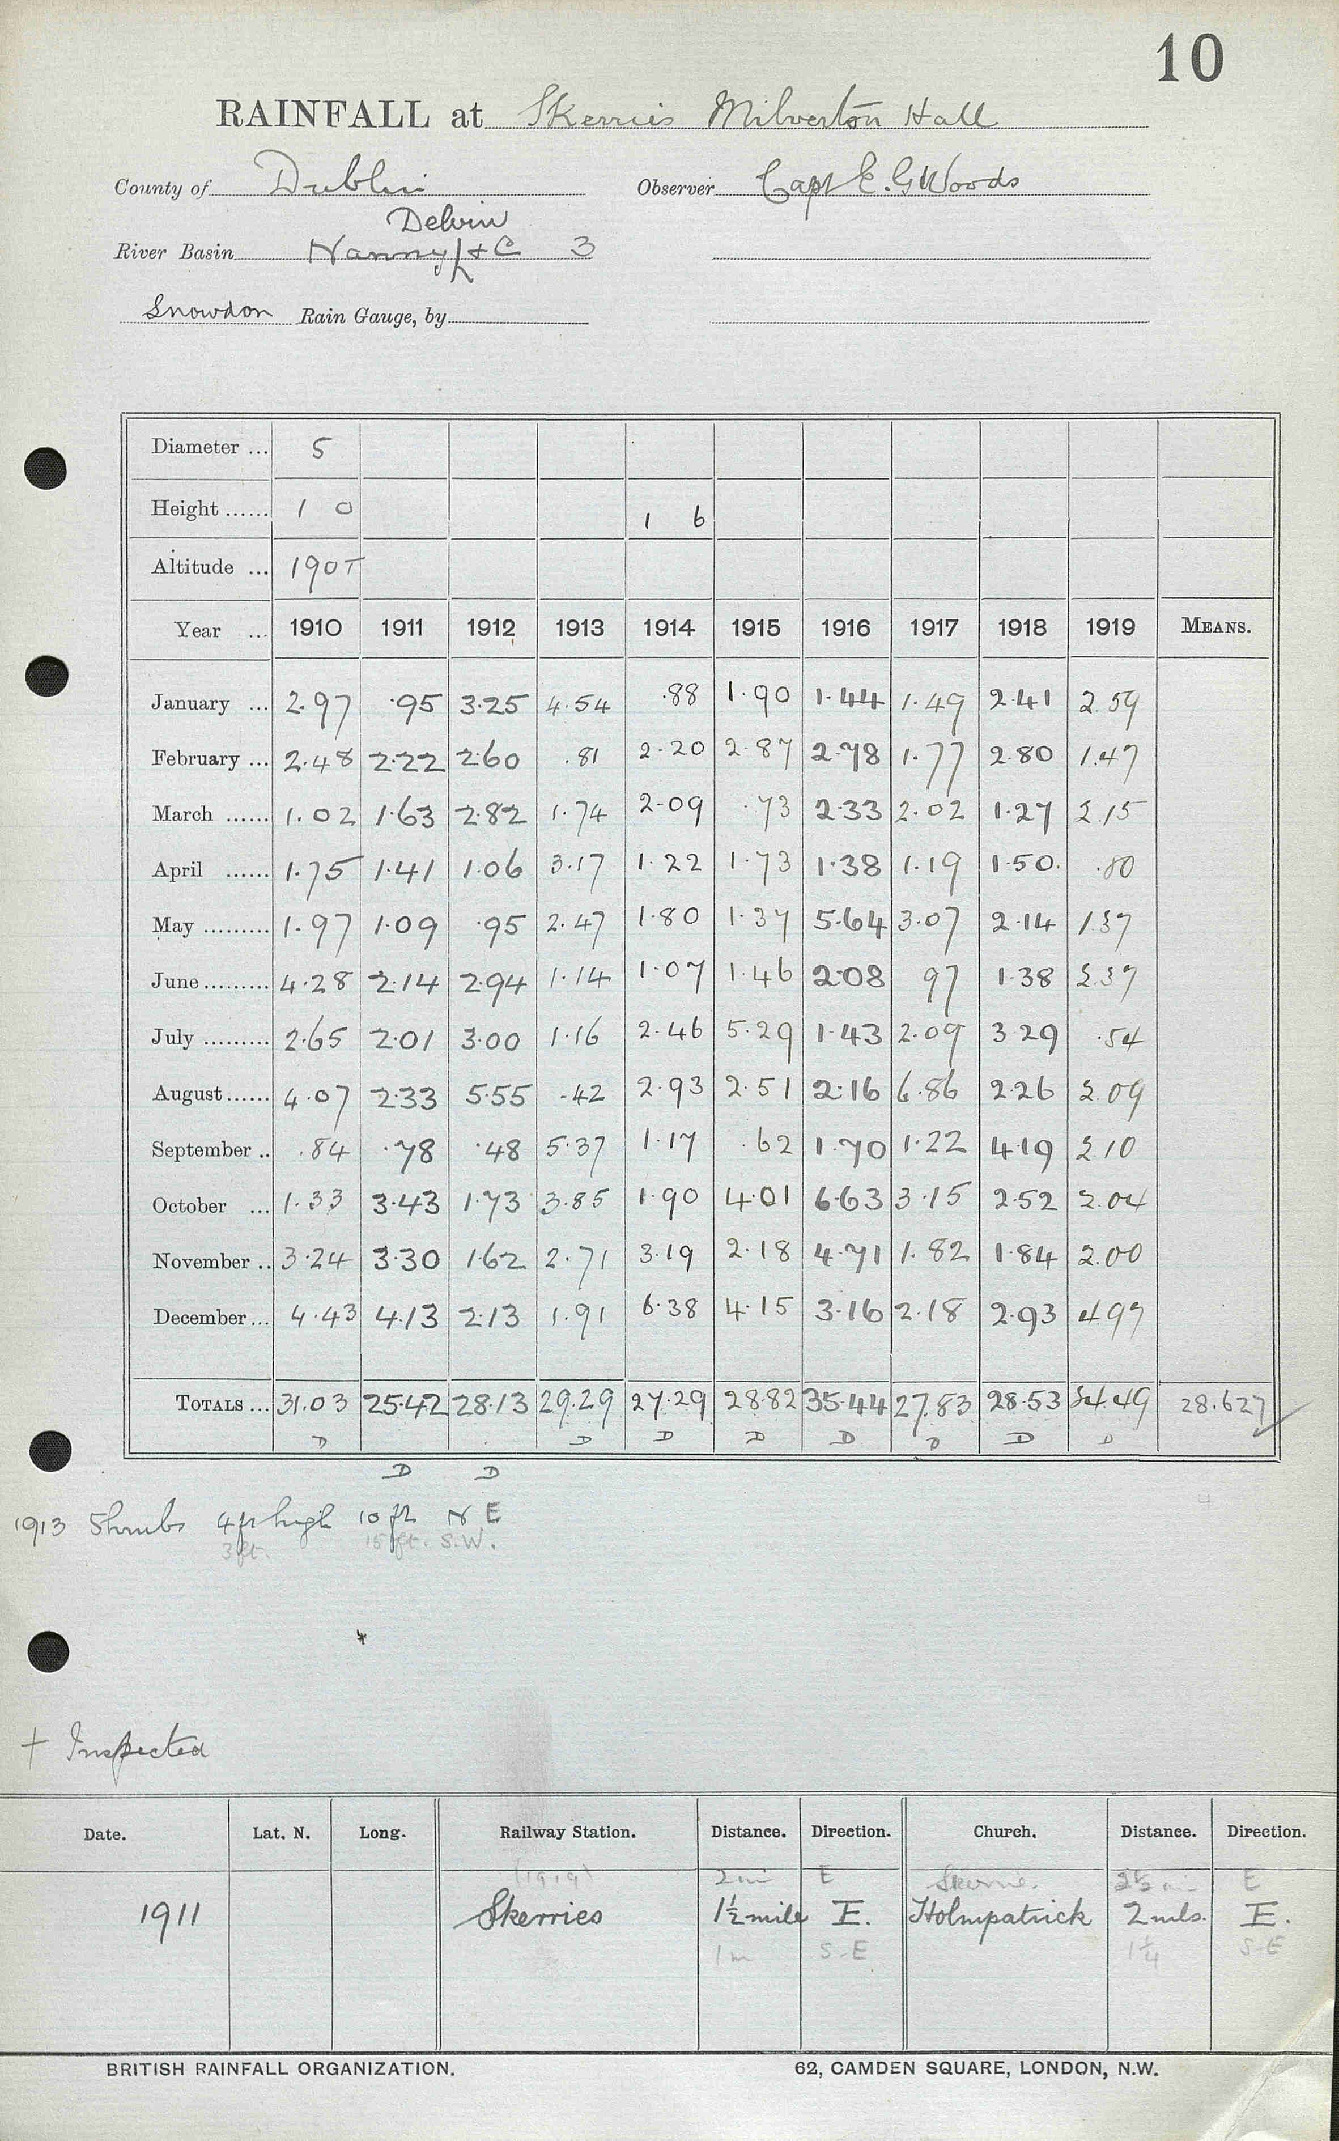 10
RAINFALL at Skerries Milverton Hall
County of Dublin Observer Capt E. G Woods
Delvin
River Basin Nanny & C 3
Snowdon Rain Gauge, by
Diameter ... 5
Height ...... 1 0 1 6
Altitude ... 190T
Year ... 1910 1911 1912 1913 1914 1915 1916 1917 1918 1919 MEANS.
January ... 2.97 .95 3.25 4.54 .88 1.90 1.44 1.49 2.41 2.59
February ... 2.48 2.22 2.60 .81 2.20 2.87 2.78 1.77 2.80 1.47
March ...... 1.02 1.63 2.82 1.74 2.09 .73 2.33 2.02 1.27 2.15
April ...... 1.75 1.41 1.06 3.17 1.22 1.73 1.38 1.19 1.50. .80
May ......... 1.97 1.09 .95 2.47 1.80 1.37 5.64 3.07 2.14 1.37
June ......... 4.28 2.14 2.94 1.14 1.07 1.46 2.08 97 1.38 2.37
July ......... 2.65 2.01 3.00 1.16 2.46 5.29 1.43 2.09 3 29 .54
August ...... 4.07 2.33 5.55 .42 2.93 2.51 2.16 6.86 2.26 2.09
September .. .84 .78 .48 5.37 1.17 .62 1.70 1.22 4.19 2.10
October ... 1.33 3.43 1.73 3.85 1.90 4.01 6.63 3.15 2.52 2.04
November .. 3.24 3.30 1.62 2.71 3.19 2.18 4.71 1.82 1.84 2.00
December ... 4.43 4.13 2.13 1.91 6.38 4.15 3.16 2.18 2.93 4.97
TOTALS ... 31.03 25.42 28.13 29.29 27.29 28.82 35.44 27.83 28.53 24.49 28.627
D D D D D D D D
D D
1913 Shrubs 4ft high 10 ft N E
3ft. 15 ft. S.W.
+ Inspected
Date. Lat. N. Long. Railway Station. Distance. Direction. Church. Distance. Direction.
(1919) 2 mi E E
1911 Skerries 1½ mile E. Holmpatrick 2 mls. E.
1 m S-E 1¼ S-E
BRITISH RAINFALL ORGANIZATION. 62, CAMDEN SQUARE, LONDON, N.W.